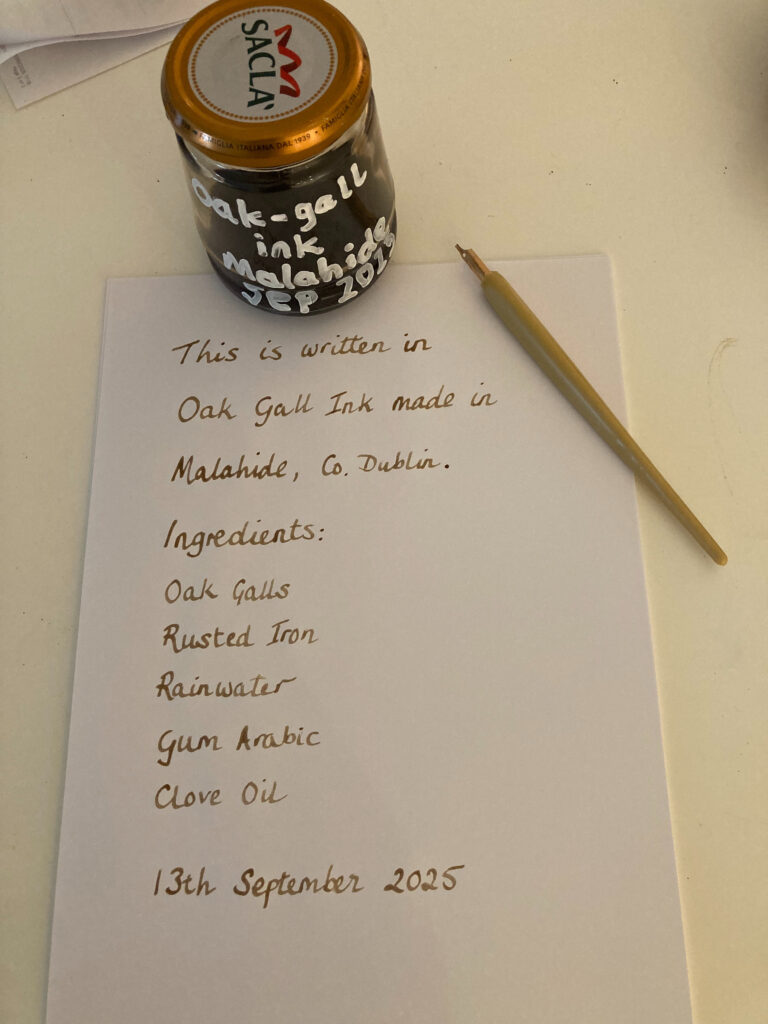 SACLÀ
FAMIGLIA ITALIANA DAL 1939 • FAMIGLIA ITALIANA
Oak-gall
ink
Malahide
SEP
This is written in
Oak Gall Ink made in
Malahide, Co. Dublin.
Ingredients:
Oak Galls
Rusted Iron
Rainwater
Gum Arabic
Clove Oil
13th September 2025